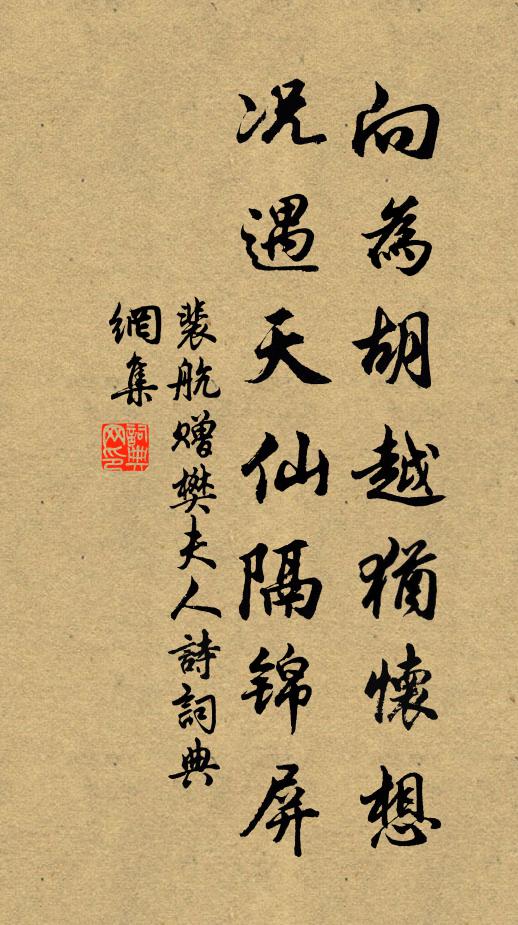 向為胡越猶懷想
況遇天仙隔錦屏
裴航贈樊夫人詩詞典
網集
詞典
网印